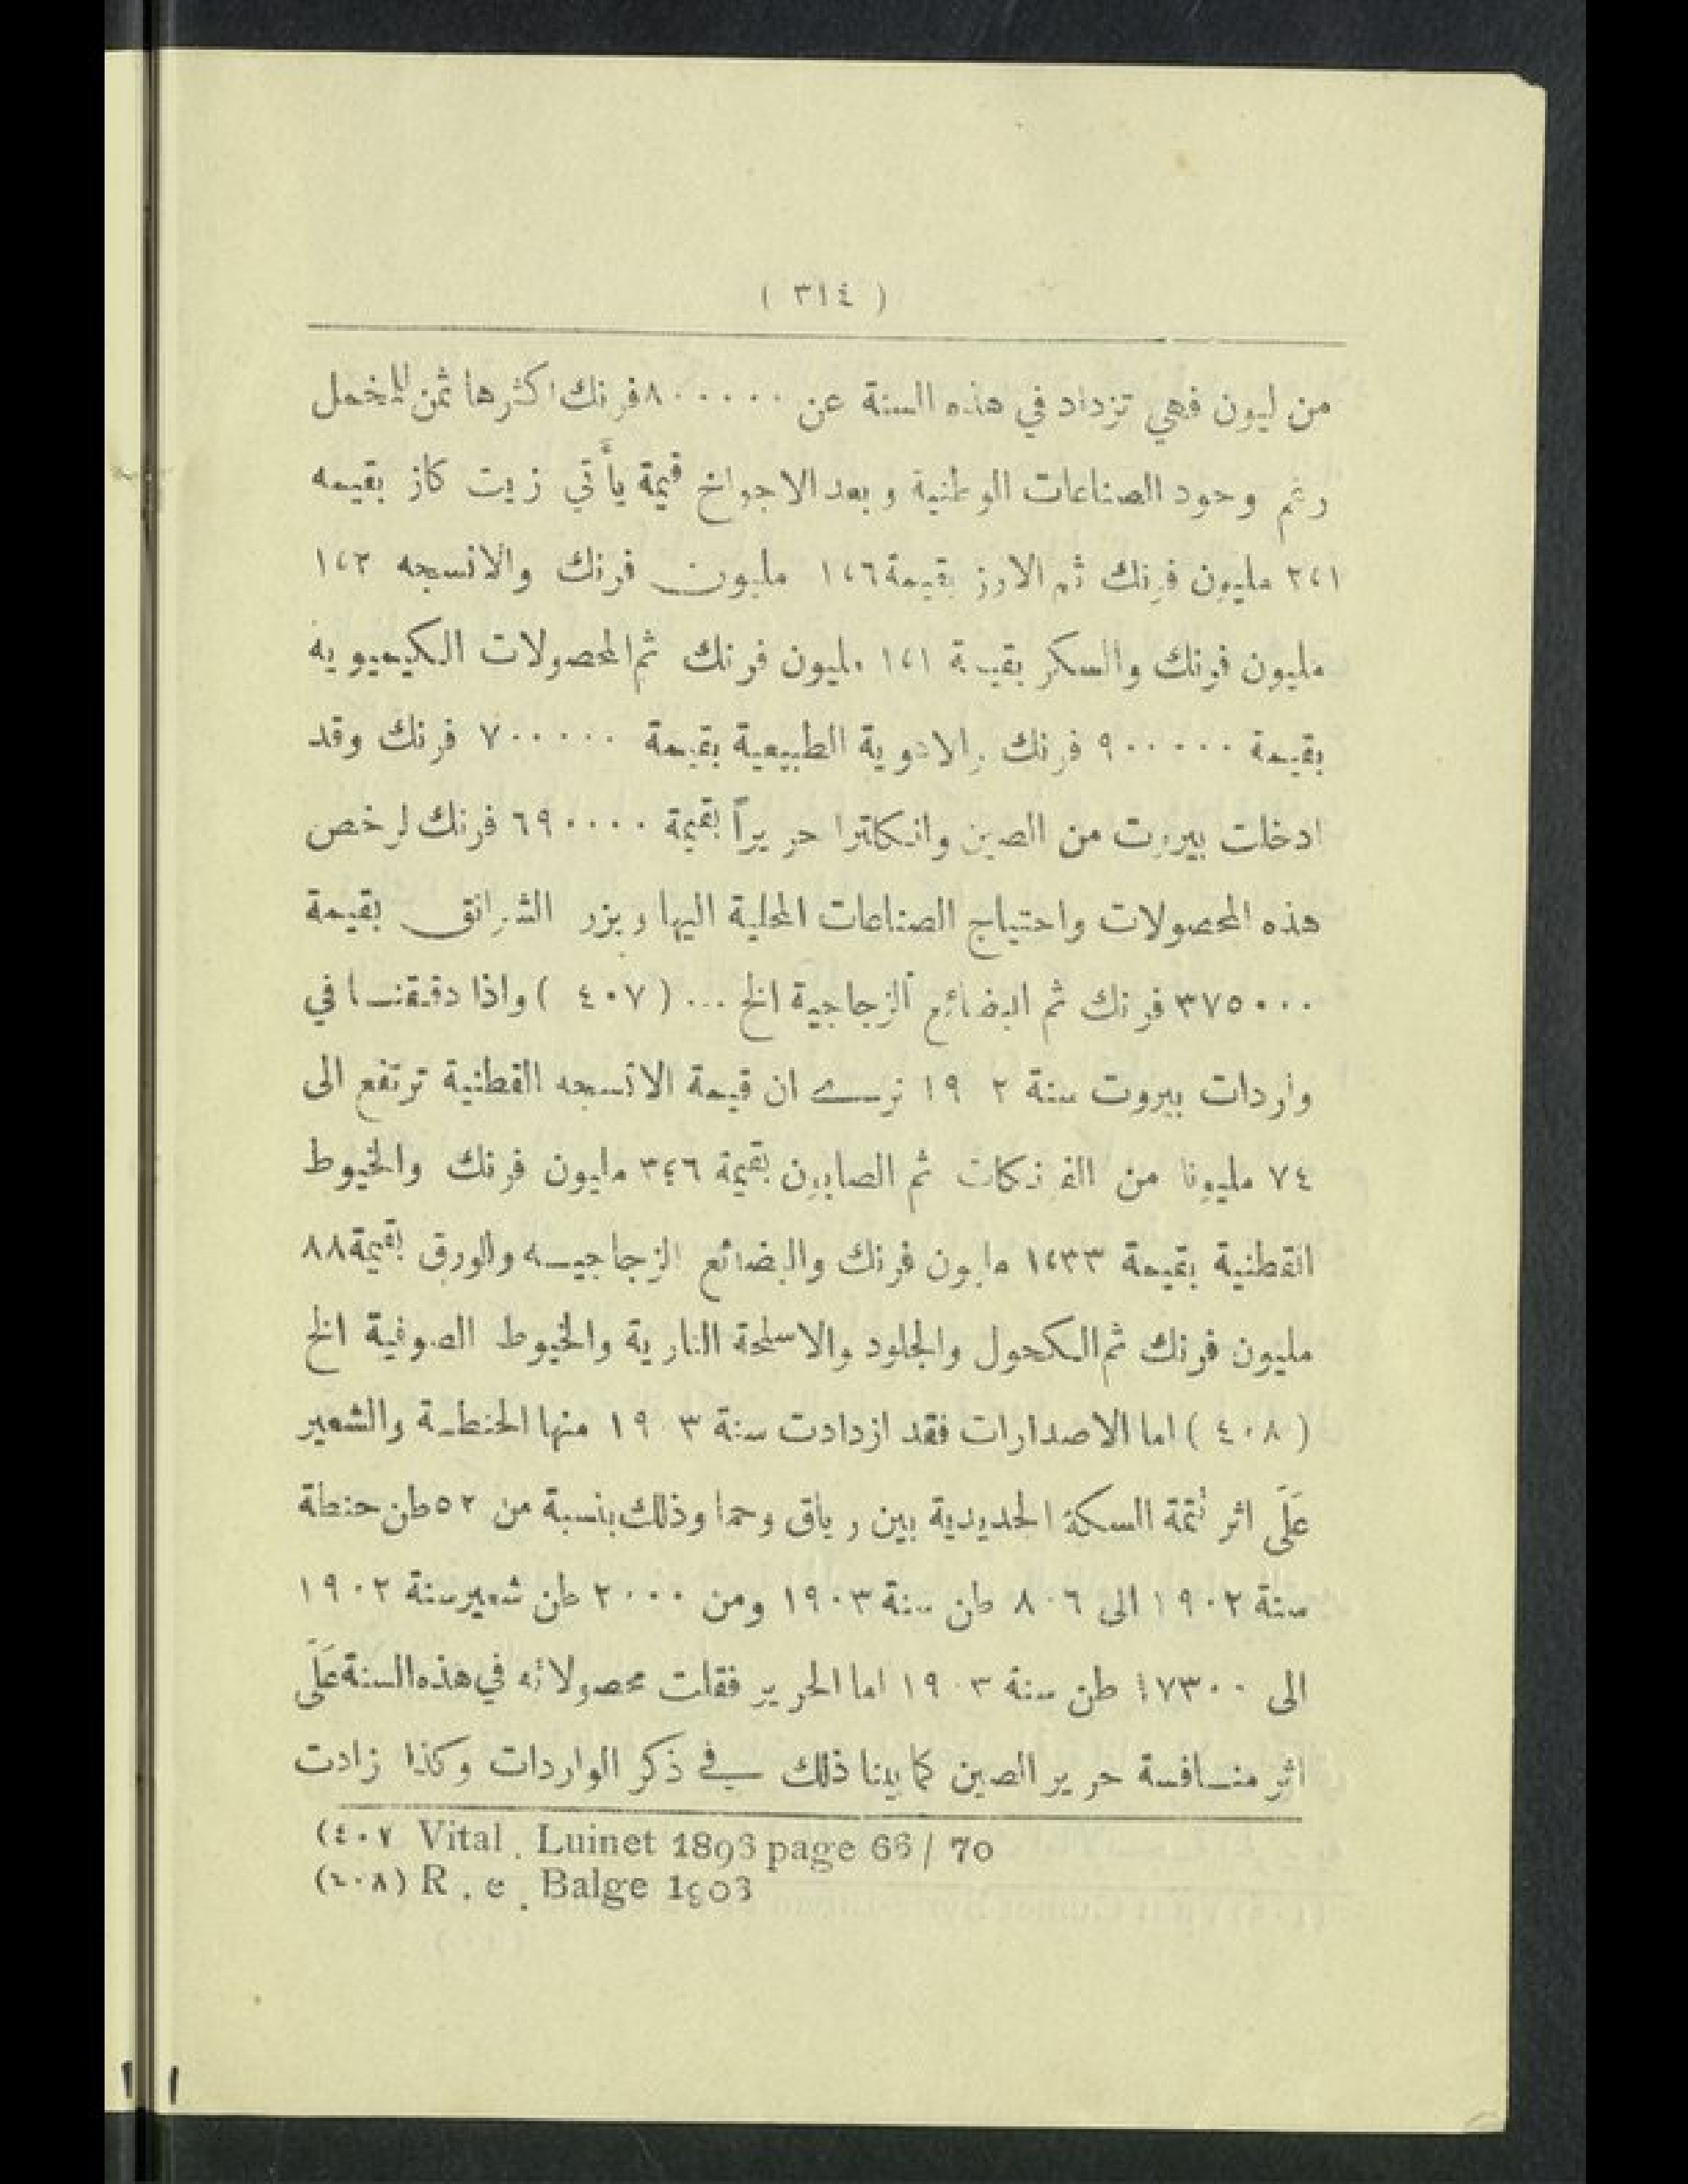 ( ٣١٤ )
من ليون فهي تزداد في هذه السنة عن ٨٠٠٠٠٠ فرنك اكثرها ثمن المخمل
رغم وجود الصناعات الوطنية وبعد الاجواخ قيمة يأتي زيت كاز بقيمه
٢،١ مليون فرنك ثم الارز بقيمة ١،٦ مليون فرنك والانسجه ١،٢
مليون فرنك والسكر بقيمة ١،١ مليون فرنك ثم المحصولات الكيميويه
بقيمة ٩٠٠٠٠٠ فرنك والادوية الطبيعية بقيمة ٧٠٠٠٠٠ فرنك وقد
ادخلت بيروت من الصين وانكلترا حريراً بقيمة ٦٩٠٠٠٠ فرنك لرخص
هذه المحصولات واحتياج الصناعات المحلية اليها وبزر الشرانق بقيمة
٣٧٥٠٠٠ فرنك ثم البضائع الزجاجية الخ ... ( ٤٠٧ ) واذا دققنا في
واردات بيروت سنة ٢ ١٩ نرى ان قيمة الانسجه القطنية ترتفع الى
٧٤ مليونا من الفرنكات ثم الصابون بقيمة ٣،٦ مليون فرنك والخيوط
القطنية بقيمة ١،٣٣ مليون فرنك والبضائع الزجاجيه والورق بقيمة ٨٨
مليون فرنك ثم الكحول والجلود والاسلحة النارية والخيوط الصوفية الخ
( ٤٠٨ ) اما الاصدارات فقد ازدادت سنة ١٩٠٣ منها الحنطة والشعير
عَلَى اثر تتمة السكة الحديدية بين رياق وحما وذلك بنسبة من ٥٢ طن حنطة
سنة ١٩٠٢ الى ٨٠٦ طن سنة ١٩٠٣ ومن ٢٠٠٠ طن شعير سنة ١٩٠٢
الى ١٧٣٠٠ طن سنة ١٩٠٣ اما الحرير فقلت محصولاته في هذه السنة عَلَى
اثر منافسة حرير الصين كما بينا ذلك في ذكر الواردات وكذا زادت
(٤٠٧ Vital . Luinet 1893 page 66 / 70
(٤٠٨) R . e . Balge 1903